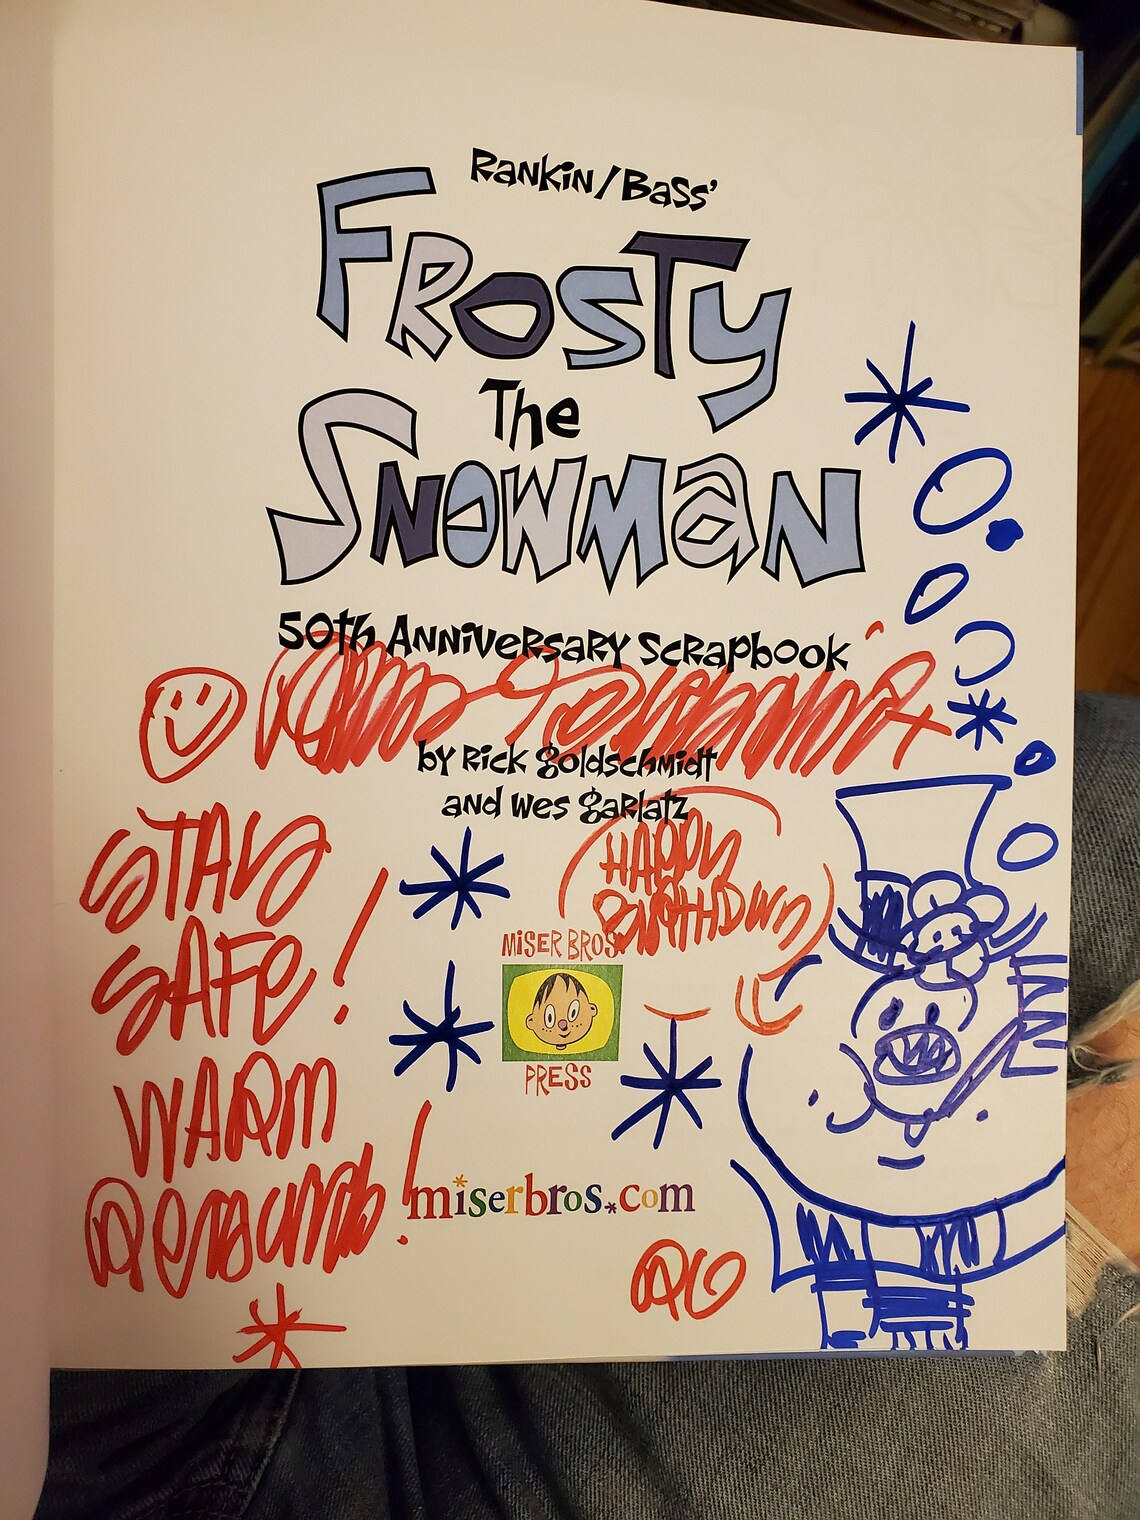 Rankin/Bass'
Frosty
The
Snowman
50th Anniversary Scrapbook
by Rick Goldschmidt
and Wes Garlatz
HAPPY
BIRTHDAY
STAY
SAFE!
WARM
REGARDS!
MISER BROS
PRESS
miserbros.com
RG